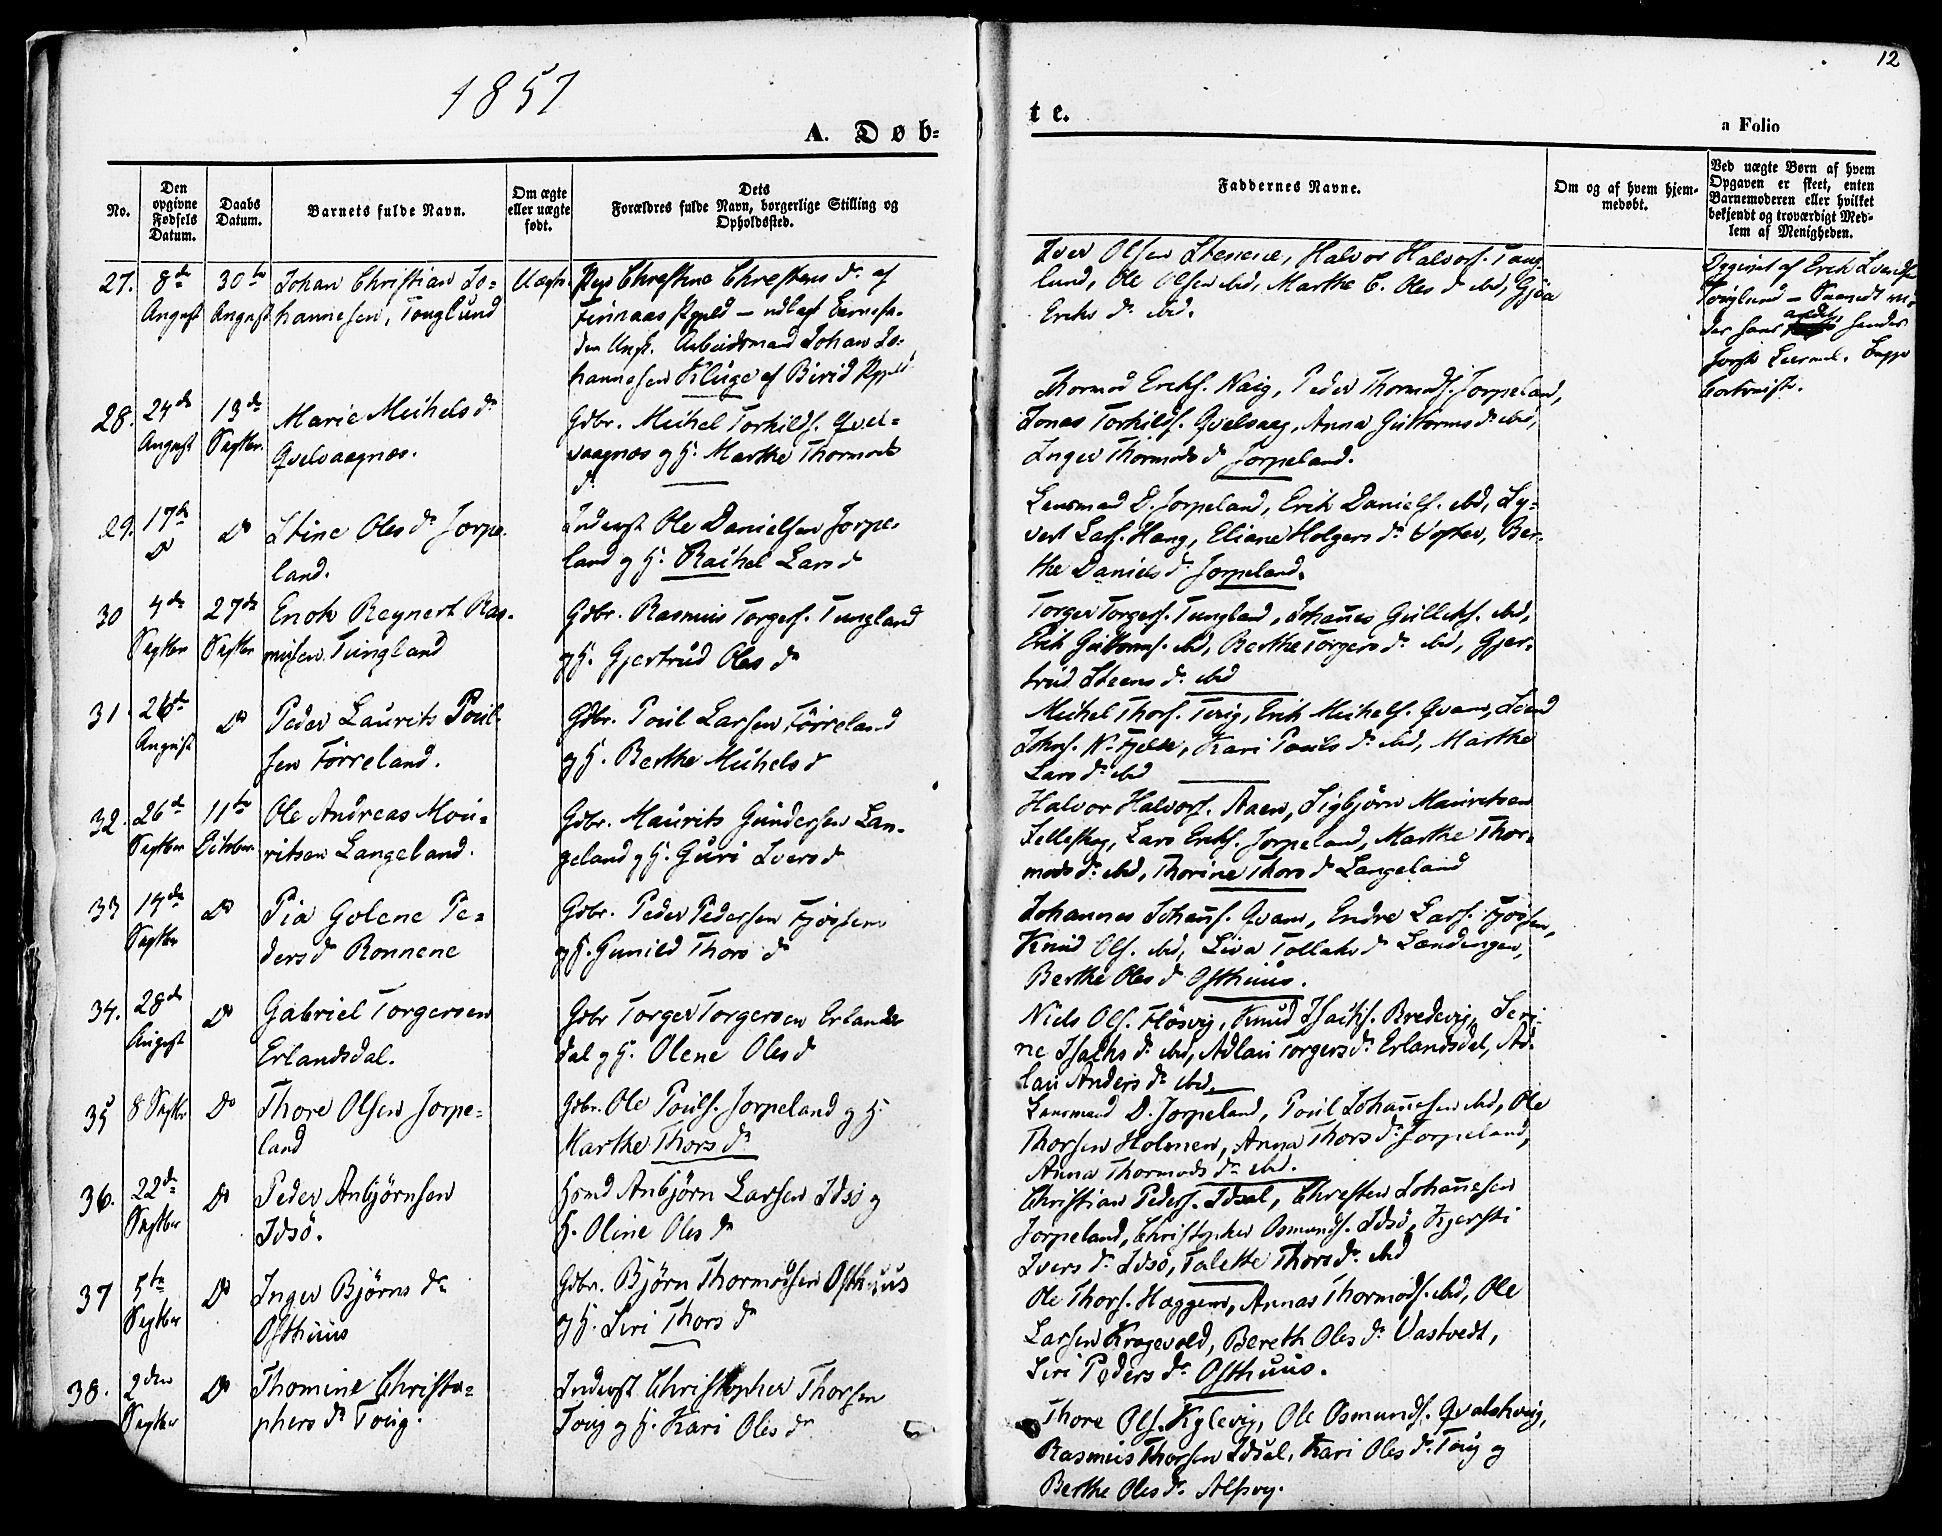 1857
12
A. Døb-
te.
a Folio
No.
Den
opgivne
Fødsels
Datum.
Daabs
Datum.
Barnets fulde Navn.
Om ægte
eller uægte
født.
Dets
Forældres fulde Navn, borgerlige Stilling og
Opholdssted.
Faddernes Navne.
Om og af hvem hjem-
medøbt.
Ved uægte Børn af hvem
Opgaven er skeet, enten
Barnemoderen eller hvilket
bekjendt og troværdigt Med-
lem af Menigheden.
27.
8de
August
30te
August
Johan Christian Jo-
hannesen, Tonglund
Uægte
Christine Christens Dr af
Finnaas Pgjeld – udlagt Barnefa-
der Ungk. Arbeidsmand Johan Jo-
hannesen Kluge af Birid Pgjeld
Iver Olsen Halvor Halvors. Tong
lund, Ole Olsen ibd, Marthe C. Oles Dr ibd, Gjøa
Eriks Dr ibd.
Opgivet af Erik
Tonglund
der hans hendes
28.
24de
August
13de
Septbr.
Marie Michels Dr
Qvelvaagnæs.
Gdbr. Michel Torkilds. Qvel-
vaagnæs og H. Marthe Thormods
Dr
Thormod Eriks. Vaig, Peder Thormods. Jorpeland,
Jonas Torkilds. Qvelvaag, Anna Guttorms Dr ibd,
Inger Thormods Dr Jorpeland.
29.
17de
Do
Do
Stine Oles Dr Jorpe-
land.
Inderst Ole Danielsen Jorpe-
land og H. Rachel Lars Dr
Lensmand D. Jorpeland, Erik Daniels. ibd, Sy-
vert Lars. Haug, Eliane Holgers Dr Ber-
the Daniels Dr Jorpeland.
30
4de
Septbr
27de
Septbr
Enok Reynert Ras-
musen Tungland
Gdbr. Rasmus Torgers. Tungland
og H. Gjertrud Oles Dr
Torger Torgers. Tungland, Johanes Gulleks. ibd,
Erik Guttorms. ibd, Berthe Torgers Dr ibd, Gjer-
trud Steens Dr ibd
31.
26de
August
Do
Peder Laurits Poul-
sen Tørreland.
Gdbr. Poul Larsen Tørreland
og H. Berthe Michels Dr
Michel Thors. Erik Michels. Qvam,
Johns. N. Fjelde, Kari Pouls Dr ibd, Marthe
Lars Dr ibd
32.
26de
Septbr
11te
October
Ole Andreas Mou-
ritsen Langeland.
Gdbr. Maurits Gundersen Lan-
geland og H. Guri Ivers Dr
Halvor Halvors. Aaen, Sigbjørn Mauritsen
Lars Eriks. Jorpeland, Marthe Thor-
mods Dr ibd, Thorine Thors Dr Langeland
33
14de
Septbr
Do
Pia Golene Pe-
ders Dr Ronnene
Gdbr. Peder Pedersen Fjøssene
og H. Gunild Thors Dr
Johannes Johans. Qvam, Endre Lars. Fjøssen,
Knud Ols. ibd, Siva Tollaks Dr Lændingen,
Berthe Oles Dr Osthuus.
34.
28de
August
Do
Gabriel Torgersen
Erlandsdal.
Gdbr Torger Torgersen Erlands-
dal og H. Olene Oles Dr
Niels Ols. Fløsvig, Knud Isachs. Bredevig, Seri-
ne Isachs Dr ibd, Adlau Torgers Dr Erlandsdal, Ad-
lau Anders Dr ibd.
35
8 Septbr
Do
Thore Olsen Jorpe-
land
Gdbr. Ole Pouls. Jorpeland og H.
Marthe Thors Dr
Lensmand D. Jorpeland, Poul Johanesen ibd, Ole
Thorsen Holmen, Anna Thors Dr Jorpeland,
Anna Thormods Dr ibd.
36.
22de
Septbr
Do
Peder Anbjørnsen
Idsø.
Hsmd Anbjørn Larsen Idsø og
H. Oline Oles Dr
Christian Peders. Idsal, Christen Johanesen
Jorpeland, Christopher Osmunds. Idsø, Kjersti
Ivers Dr Idsø, Talette Thors Dr ibd
37
5te
Septbr
Do
Inger Bjørns Dr
Osthuus
Gdbr. Bjørn Thormodsen Osthuus
og H. Siri Thors Dr
Ole Thors. Haggem, Annas Thormods. ibd, Ole
Larsen Krogevold, Bereth Oles Dr Vastvedt,
Siri Peders Dr Osthuus.
38.
2den
Septbr
Do
Thomine Christo-
phers Dr Toug.
Inderst Christopher Thorsen
Toug og H. Kari Oles Dr
Thore Ols. Kylevig, Ole Osmunds. Qvalshoug,
Rasmus Thorsen Idsal, Kari Oles Dr Toug og
Berthe Oles Dr Alsvig.